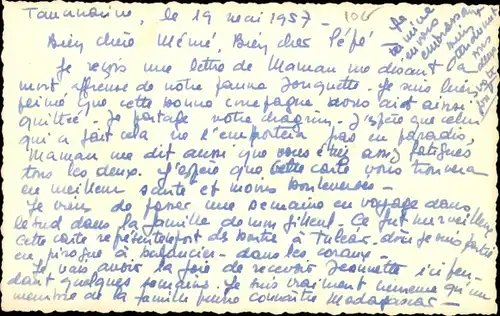 Tananarive, le 19 mai 1957 - 106
Bien chère Mémé, Bien cher Pépé
Je reçois une lettre de Maman me disant la
mort affreuse de notre pauvre Jonquette. Je suis bien
peiné que cette bonne compagne vous ait ainsi
quittés. Je partage votre chagrin. J'espère que celui
qui a fait cela ne l'emportera pas en paradis,
Maman me dit aussi que vous êtes assez fatigués
tous les deux. J'espère que cette carte vous trouvera
en meilleur santé et moins bouleversés -
Je viens de passer une semaine en voyage dans
le sud dans la famille de mon filleul. Ce fut merveilleux
Cette carte représente port de boutre à Tuléar, d'où je suis partie
en pirogue à balancier - dans les coraux -
Je vais avoir la joie de recevoir Jeannette ici pen-
dant quelques semaines. Je suis vraiment heureuse qu'un
membre de la famille puisse connaître Madagascar -
Je
termine
en vous
embrassant
bien
tendrement
tous
deux